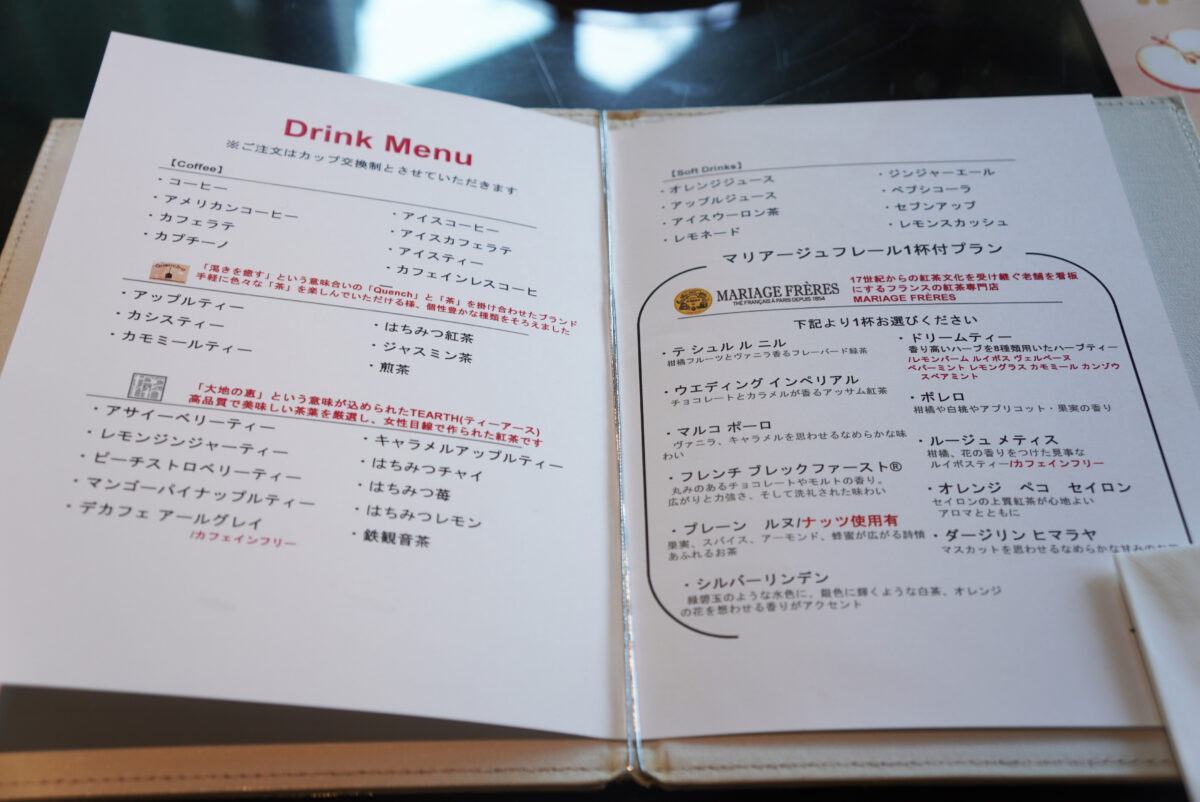 Drink Menu
※ご注文はカップ交換制とさせていただきます
【Coffee】
・コーヒー
・アメリカンコーヒー
・カフェラテ
・カプチーノ
・アイスコーヒー
・アイスカフェラテ
・アイスティー
・カフェインレスコーヒ
ー
「渇きを癒す」という意味合いの「Quench」と「茶」を掛け合わせたブランド
手軽に色々な「茶」を楽しんでいただける様、個性豊かな種類をそろえました
・アップルティー
・カシスティー
・カモミールティー
・はちみつ紅茶
・ジャスミン茶
・煎茶
「大地の恵」という意味が込められたTEARTH(ティーアース)
高品質で美味しい茶葉を厳選し、女性目線で作られた紅茶です
・アサイーベリーティー
・レモンジンジャーティー
・ピーチストロベリーティー
・マンゴーパイナップルティー
・デカフェ アールグレイ
/カフェインフリー
・キャラメルアップルティー
・はちみつチャイ
・はちみつ苺
・はちみつレモン
・鉄観音茶
【Soft Drinks】
・オレンジジュース
・アップルジュース
・アイスウーロン茶
・レモネード
・ジンジャーエール
・ペプシコーラ
・セブンアップ
・レモンスカッシュ
マリアージュフレール1杯付プラン
MARIAGE FRÈRES
THÉ FRANÇAIS À PARIS DEPUIS 1854
17世紀からの紅茶文化を受け継ぐ老舗を看板
にするフランスの紅茶専門店
MARIAGE FRÈRES
下記より1杯お選びください
・テ シュル ル ニル
柑橘フルーツとヴァニラ香るフレーバード緑茶
・ウエディング インペリアル
チョコレートとカラメルが香るアッサム紅茶
・マルコ ポーロ
ヴァニラ、キャラメルを思わせるなめらかな味
わい
・フレンチ ブレックファースト®
丸みのあるチョコレートやモルトの香り。
広がりと力強さ、そして洗礼された味わい
・プレーン ルヌ/ナッツ使用有
果実、スパイス、アーモンド、蜂蜜が広がる詩情
あふれるお茶
・シルバーリンデン
緑碧玉のような水色に、銀色に輝くような白茶、オレンジ
の花を想わせる香りがアクセント
・ドリームティー
香り高いハーブを8種類用いたハーブティー
/レモンバーム ルイボス ヴェルベーヌ
ペパーミント レモングラス カモミール カンゾウ
スペアミント
・ボレロ
柑橘や白桃やアプリコット・果実の香り
・ルージュ メティス
柑橘、花の香りをつけた見事な
ルイボスティー/カフェインフリー
・オレンジ ペコ セイロン
セイロンの上質紅茶が心地よい
アロマとともに
・ダージリン ヒマラヤ
マスカットを思わせるなめらかな甘みの